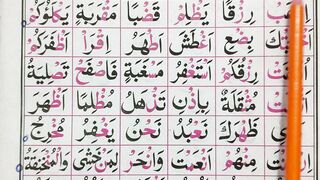 رِزْقًا يَظْلِمُ قَضْبًا مَقْرَبَةٍ يَكْلَؤُكُمْ
بِضْعِ اَغْطَشَ اَظْهَرُ اِقْرَأْ اَظْفَرَكُمْ
رِزْقُكُمْ اِسْتَغْفِرْ مَسْغَبَةٍ فَاصْفَحْ تَصْلِيَةُ
مُثْقَلَةٌ بِاِذْنِ تَذْهَلُ مُظْلِمًا اَظْهَرَ
ظَهْرَكَ نَعْبُدُ نَحْنُ يَغْفِرُ مُخْرِجٌ
مِنْهُمْ اَنْعَمْتَ وَانْحَرْ لِمَنْ خَشِيَ وَالْمُنْخَنِقَةُ